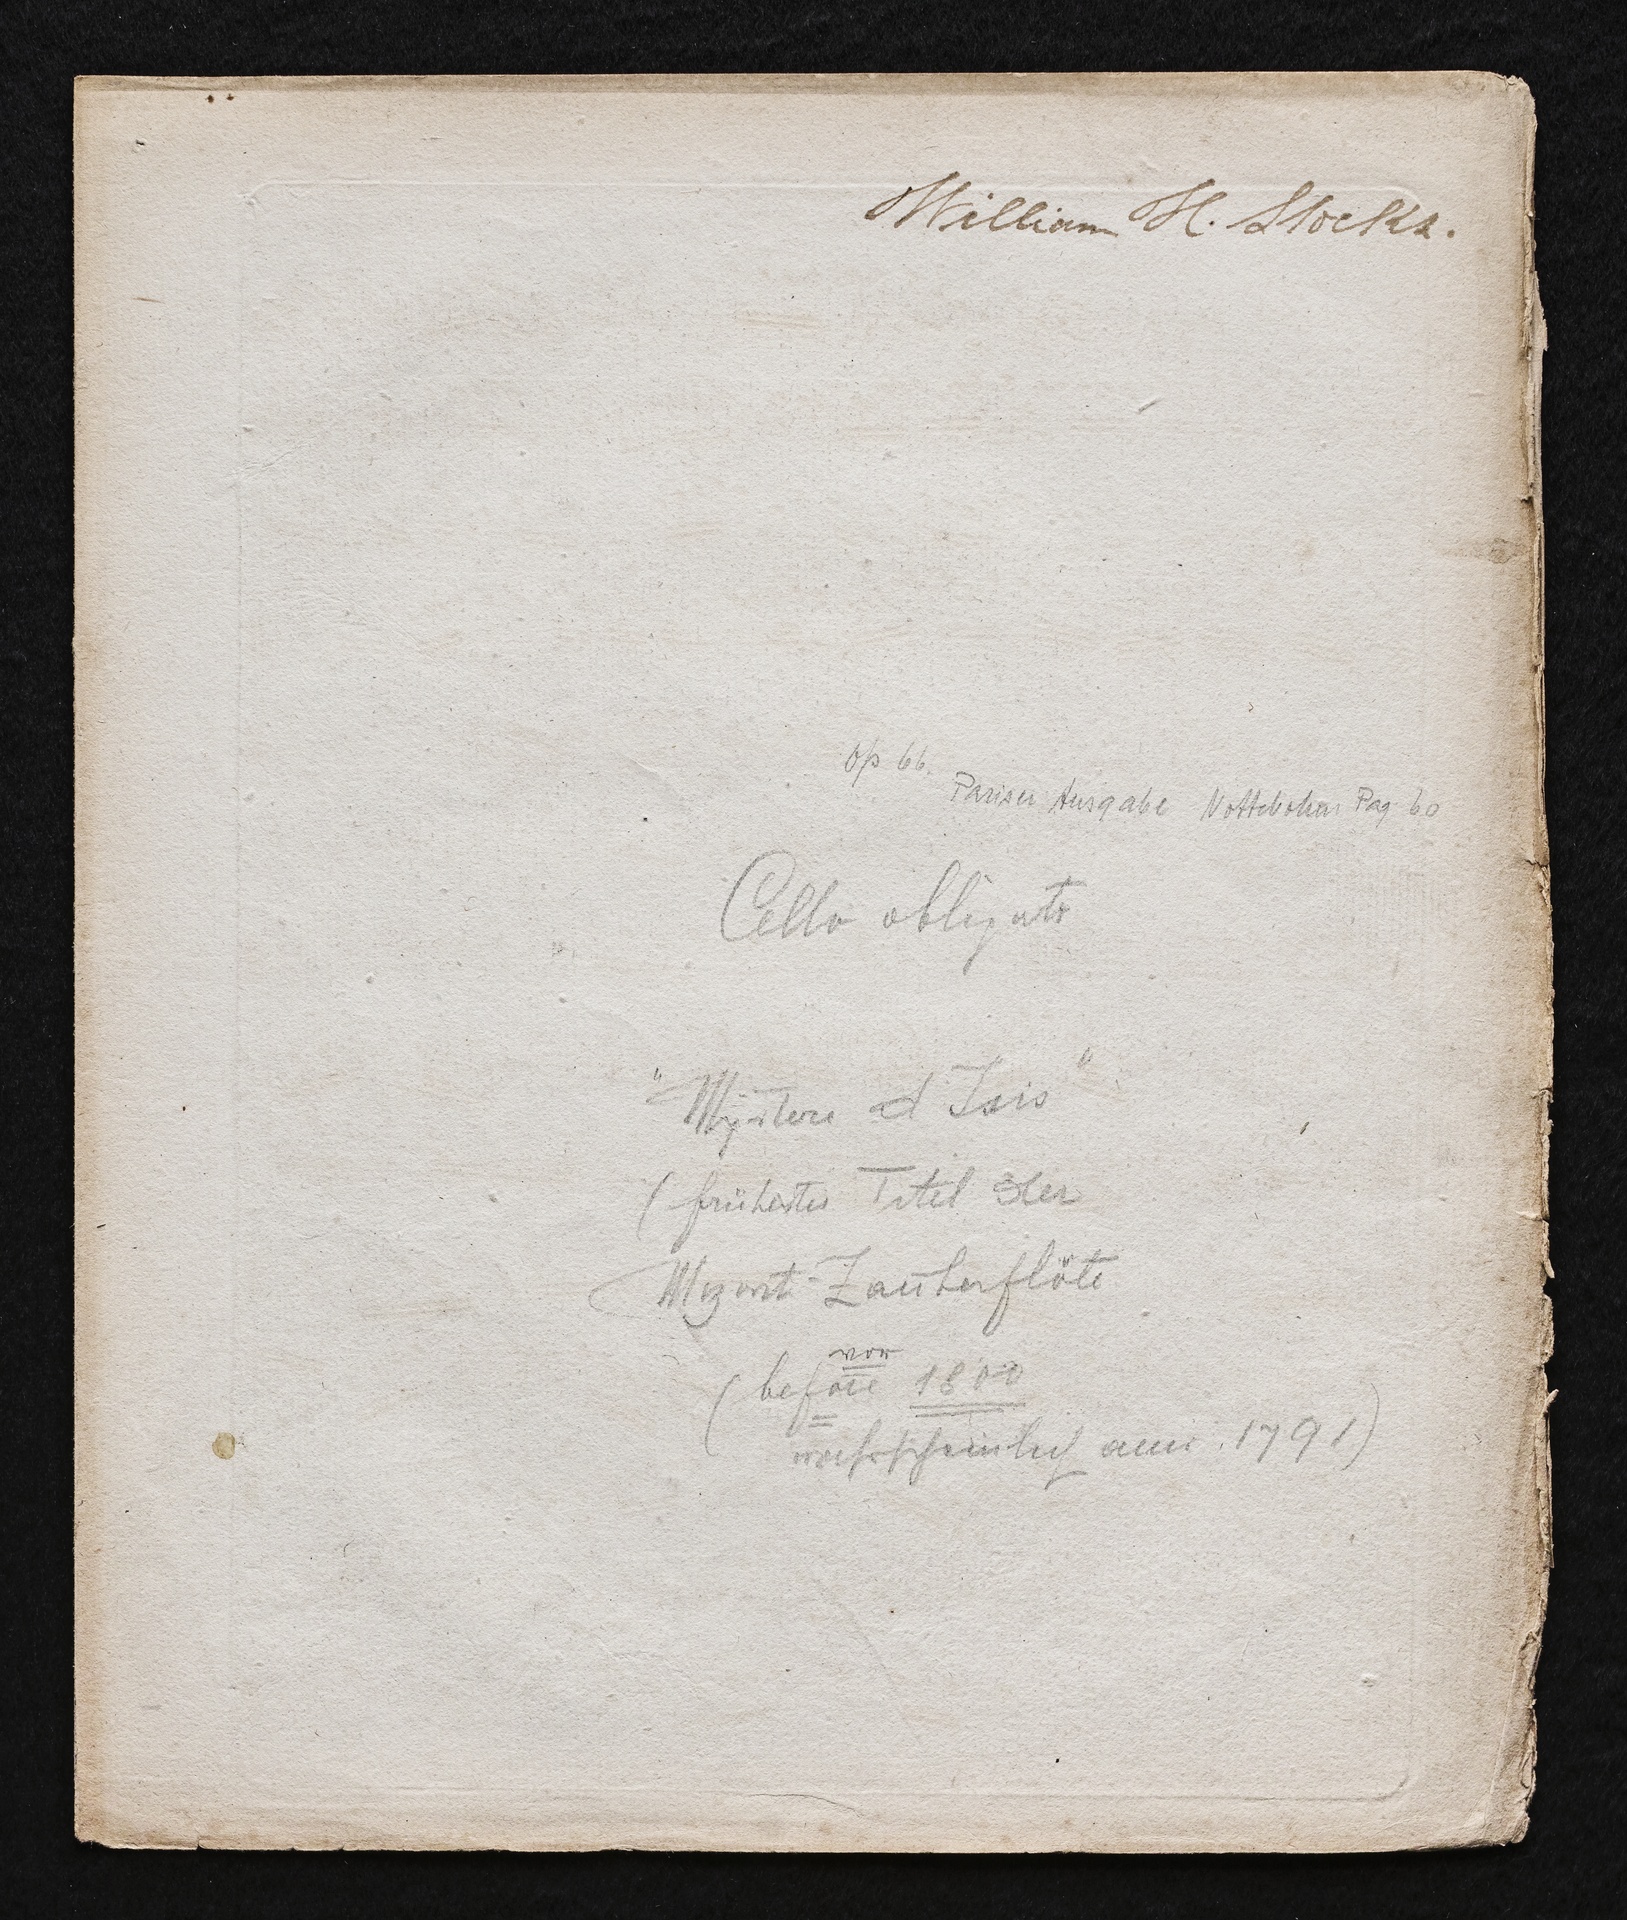 William H. Stocks.
Op 66.
Pariser Ausgabe Nottebohm Pag 60
Cello obligato
"Mystere d Isis"
(frühester Titel der
Mozart-Zauberflöte
vor
(before 1800
wahrscheinlich 1791)